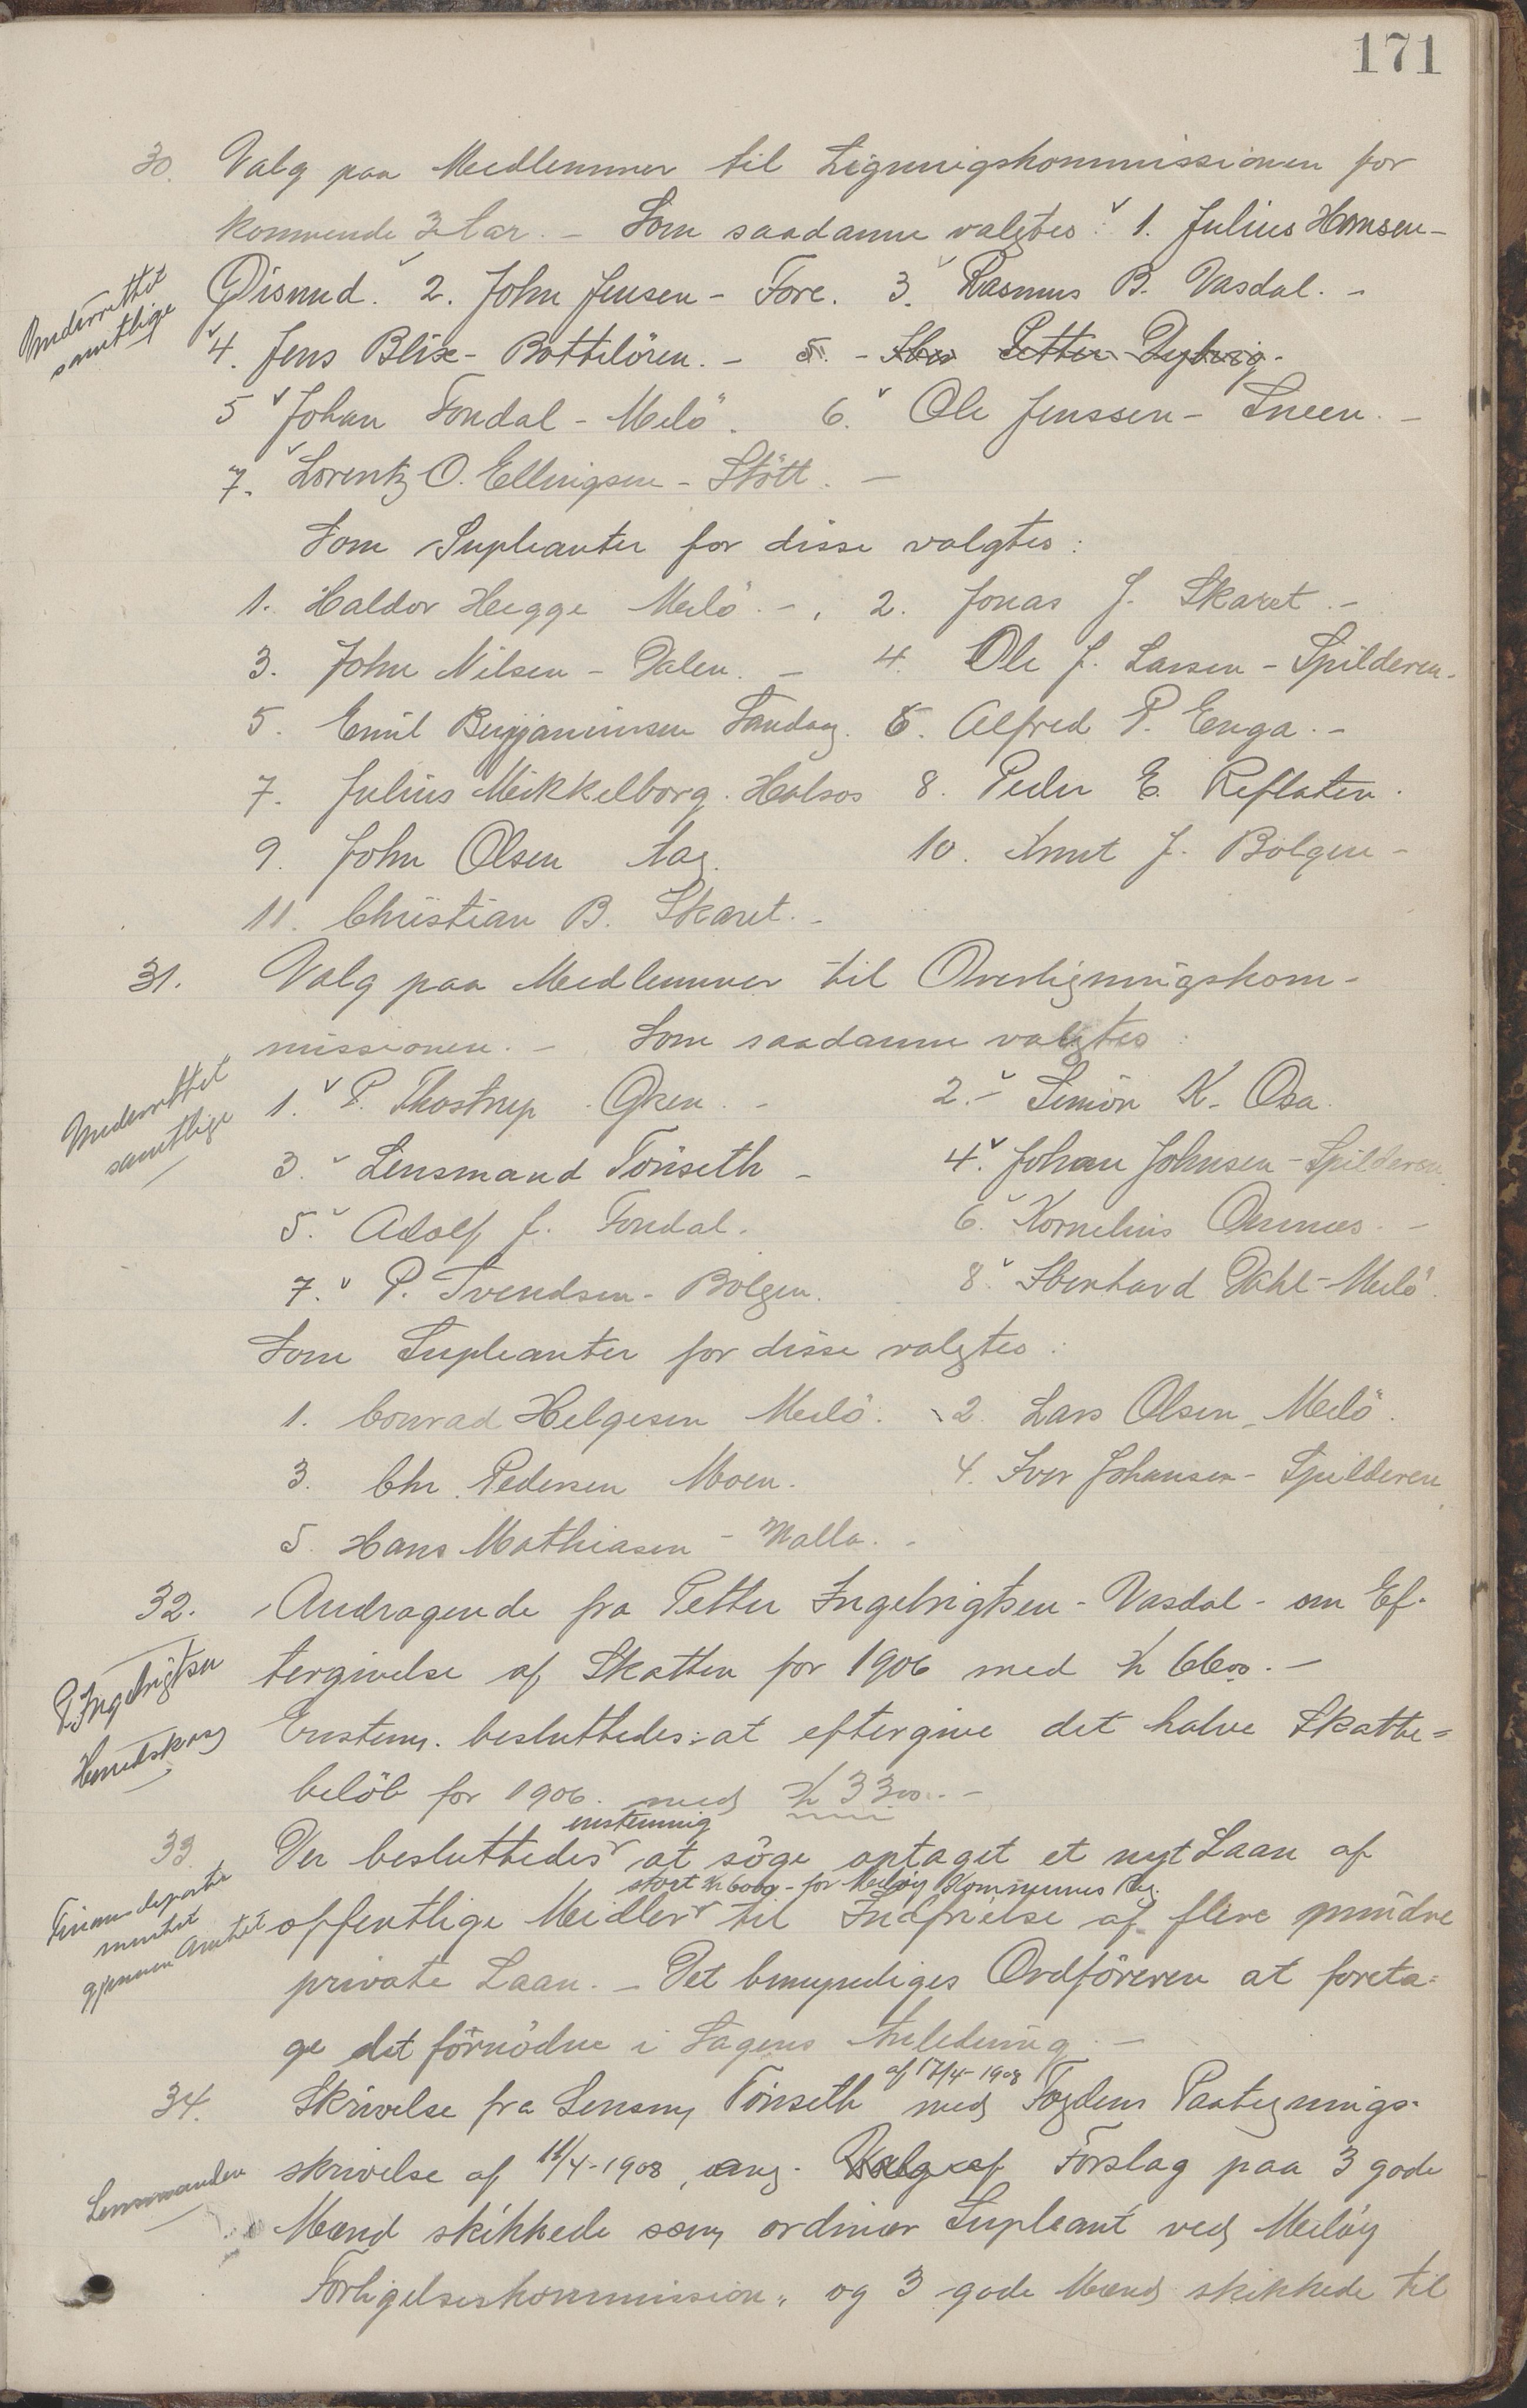 171
30. Valg paa Medlemmer til Ligningskommissionen for
kommende 3 Aar. - Som saadanne valgtes: 1. Julius Hansen -
Øisund. 2. John Jensen - Fore. 3. Rasmus B. Vasdal. -
Underrettet
samtlige
4. Jens Blix - Bottilören. - 5. - Petter Dybvig.
5 Johan Fondal - Melö. 6. Ole Jenssen - Sneen. -
7. Lorentz O. Ellingsen - Stött. -
Som Supleanter for disse valgtes:
1. Haldor Hegge Melö. - 2. Jonas J. Skaret. -
3. John Nilsen - Dalen. - 4. Ole J. Larsen - Spilderen.
5. Emil Benjaminsen Sandaag. 6. Alfred P. Enga. -
7. Julius Mikkelborg. Halsos 8. Peder E. Reflaten.
9. John Olsen Aag. 10. Knut J. Bolgen -
11. Christian B. Skaret. -
31. Valg paa Medlemmer til Overligningskom-
missionen. - Som saadanne valgtes:
Underrettet
samtlige
1. P. Thostrup Øren. - 2. - Simon K. Osa.
3. Lensmand Tönseth - 4. Johan Johnsen - Spilderen.
5. Adolf J. Fondal. 6. Kornelius Ornnes. -
7. P. Svendsen - Bolgen. 8. Eberhard Dahl - Melö.
Som Supleanter for disse valgtes:
1. Conrad Helgesen Melö. 2. Lars Olsen, Melö.
3. Chr. Pedersen Moen. 4. Iver Johansen - Spilderen
5. Hans Mathiasen - Malla. -
32. Andragende fra Petter Ingebrigtsen - Vasdal - om Ef-
tergivelse af Skatten for 1906 med Kr 6600. -
P. Ingebrigtsen
Herredskass
Enstem. besluttedes: at eftergive det halve Skatte-
belöb for 1906. med Kr 3300. -
enstemmig
33. Der besluttedes at söge optaget et nyt Laan af
stort Kr 6000 - for Melöy Kommunes Reg.
offentlige Meidler til Indfrielse af flere mindre
Finansdeparte
mentet
gjennem Amtet
private Laan. - Det bemyndiges Ordföreren at foreta-
ge det förnödne i Sagens Anledning. -
af 17/4-1908
34. Skrivelse fra Lensm. Tönseth med Fogdens Paategnings-
skrivelse af 18/4-1908, ang. Valg af Forslag paa 3 gode
Lensmanden
Mænd skikkede som ordinær Supleant ved Melöy
Forligelseskommission, og 3 gode Mænd skikkede til